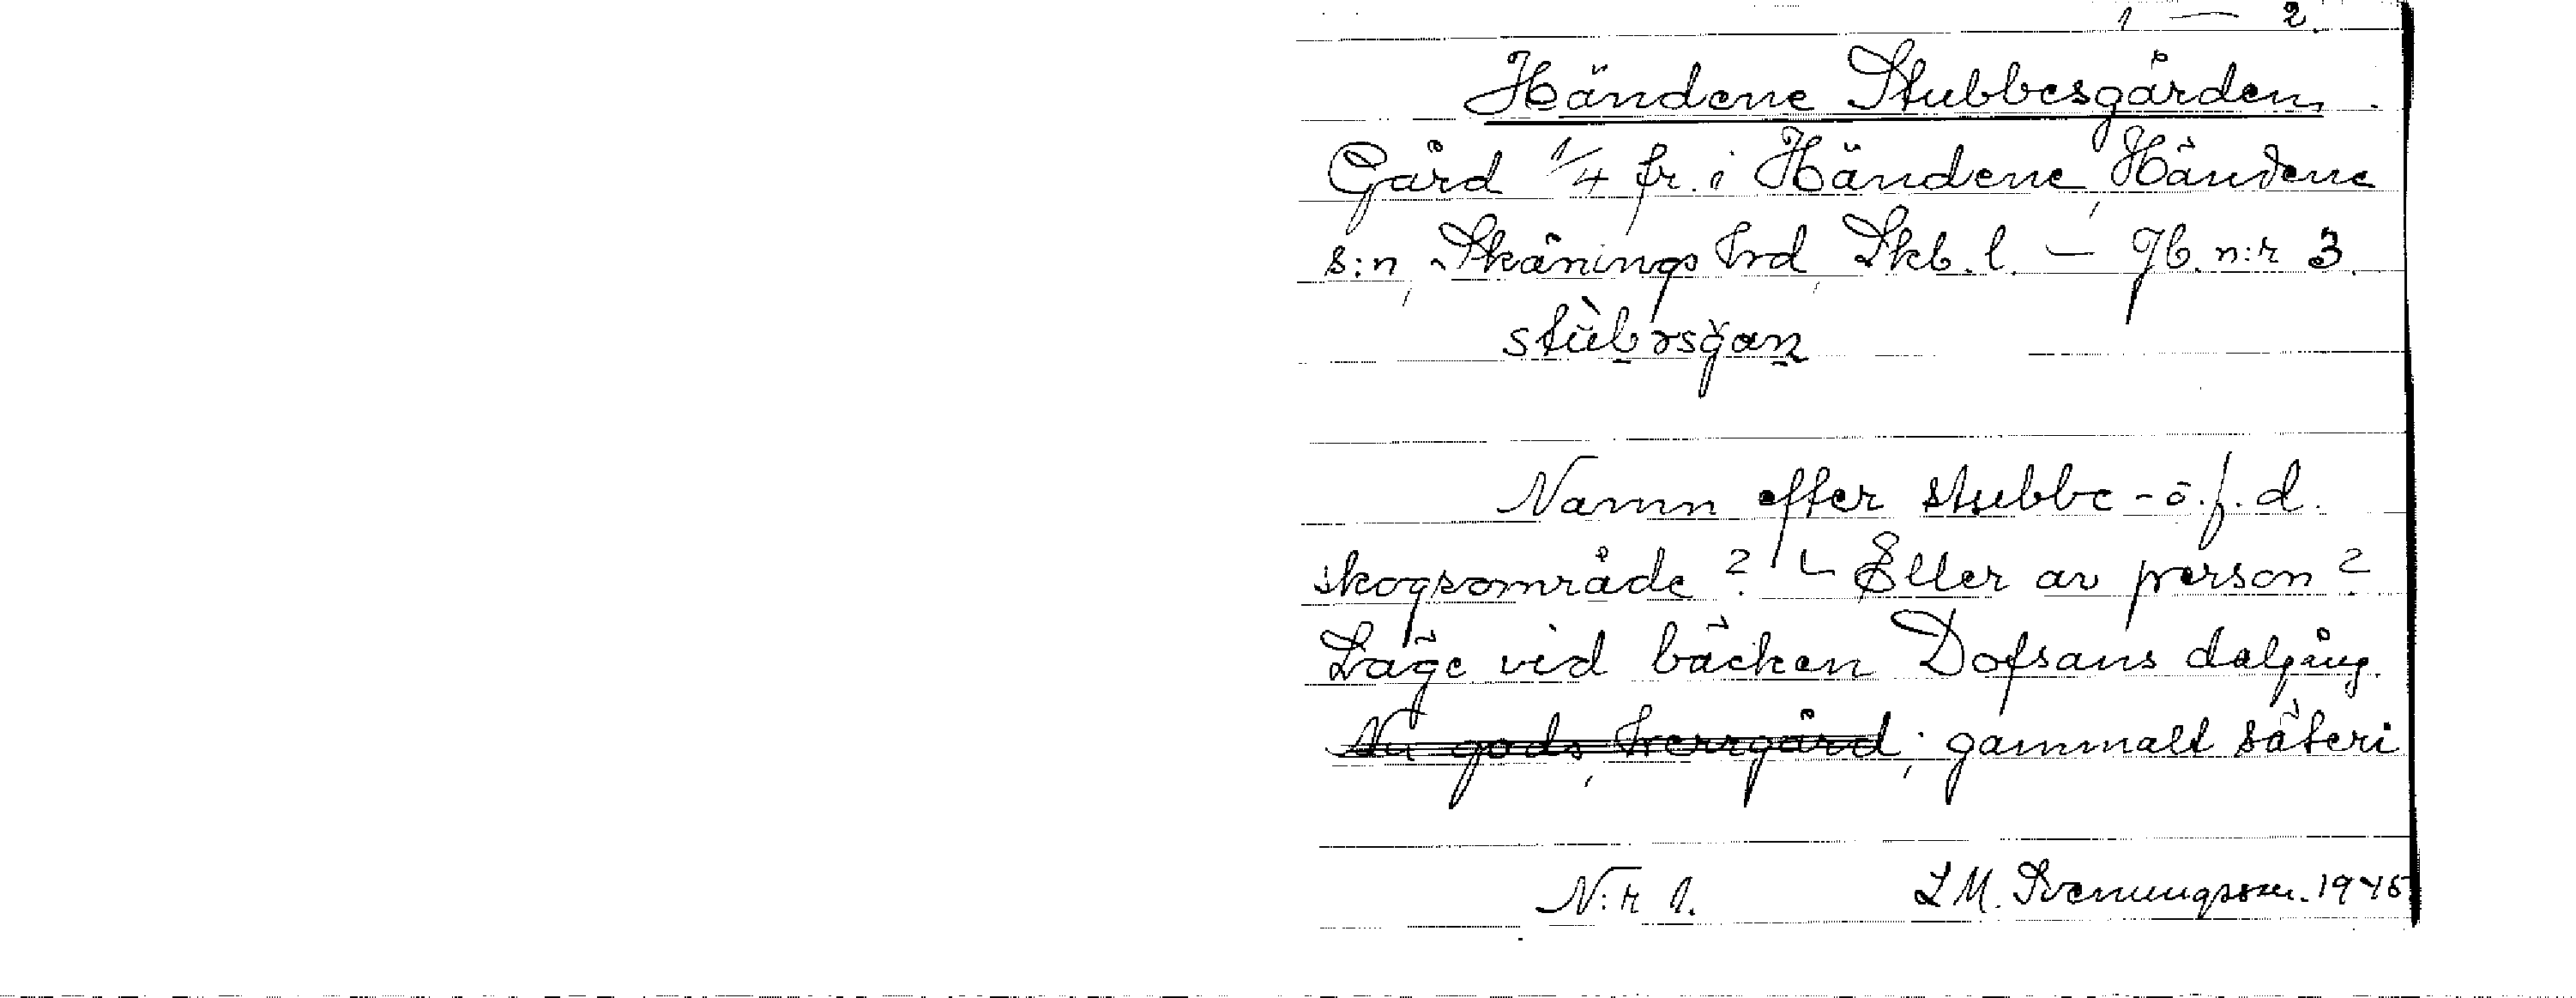 1 — 2.
Händene Stubbesgården.
Gård 1/4 fr. i Händene, Händene
s:n, Skånings hrd, Skb. l. — Jb. n:r 3.
Namn efter stubbe - ö. f. d.
skogsområde? — Eller av person?
Läge vid bäcken Dofsans dalgång.
Nu gods, herrgård; gammalt säteri
N:r 1. L M. Svenungsson. 1945